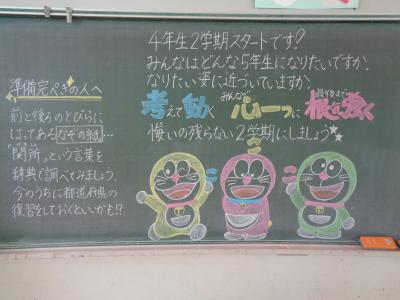 準備完ぺきの人へ
前と後ろのとびらに
はってある「なぞの紙」…
「関所」という言葉を
辞典で調べてみましょう。
今のうちに都道府県の
復習をしておくといいかも!?
4年生2学期スタートです!
みんなはどんな5年生になりたいですか。
なりたい姿に近づいていますか。
みんなで
最後まで
考えて動く 心一つに 根気強く
悔いの残らない2学期にしましょう